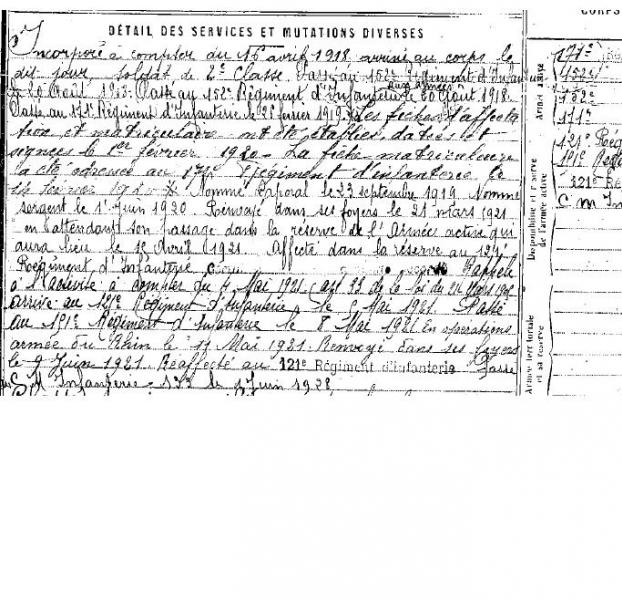 DÉTAIL DES SERVICES ET MUTATIONS DIVERSES
CORPS
Incorporé à compter du 16 avril 1918, arrivé au corps le
dit jour soldat de 2e Classe. Passé au 152e Régiment d'Infanterie
aux armées
le 20 Août 1918. Passé au 152e Régiment d'Infanterie le 20 Août 1918.
Passé au 171e Régiment d'Infanterie le 21 février 1919. Les fiches d'affecta
tion et matriculaire ont été établies, datées et
signées le 1er février 1920. La fiche matriculaire
a été adressée au 171e Régiment d'infanterie le
février 1920. Nommé Caporal le 23 septembre 1919. Nommé
sergent le 1er Juin 1920. Renvoyé dans ses foyers le 21 mars 1921
en attendant son passage dans la réserve de l'Armée active qui
aura lieu le 15 Avril 1921. Affecté dans la réserve au 121e
Régiment d'Infanterie Rappelé
à l'activité à compter du 4 Mai 1921 (art 33 de la loi du
arrivé au 121e Régiment d'Infanterie, le 5 Mai 1921. Passé
au 151e Régiment d'Infanterie le 8 Mai 1921. En opérations
armée du Rhin le 17 Mai 1921. Renvoyé dans ses foyers
le 9 Juin 1921. Réaffecté au 121e Régiment d'infanterie Passé
au C M Infanterie 132 le 1 Juin 1928
Armée active
171e
152e
171e
Disponibilité et réserve
de l'armée active
121e Rég
121e Ré
C m In
Armée territoriale
et sa réserve